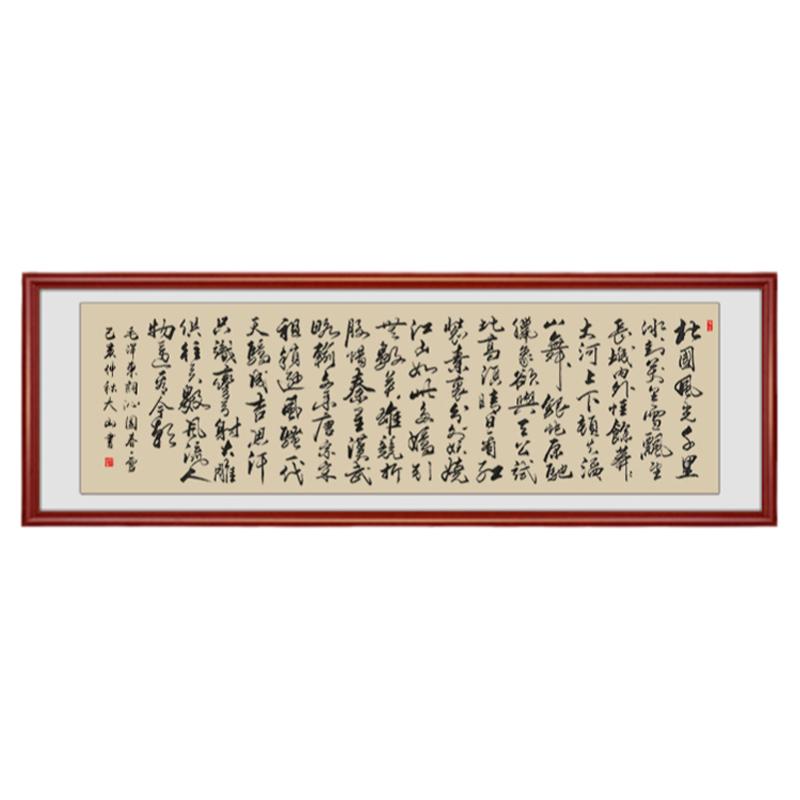 北國風光千里
冰封萬里雪飄望
長城內外惟餘莽々
大河上下頓失滔
山舞銀蛇原馳
蠟象欲與天公試
比高須晴日看紅
裝素裹分外妖嬈
江山如此多嬌引
無數英雄競折
腰惜秦皇漢武
略輸文采唐宗宋
祖稍遜風騷一代
天驕成吉思汗
只識彎弓射大雕
俱往矣數風流人
物還看今朝
毛澤東詞沁園春·雪
己亥仲秋大山書